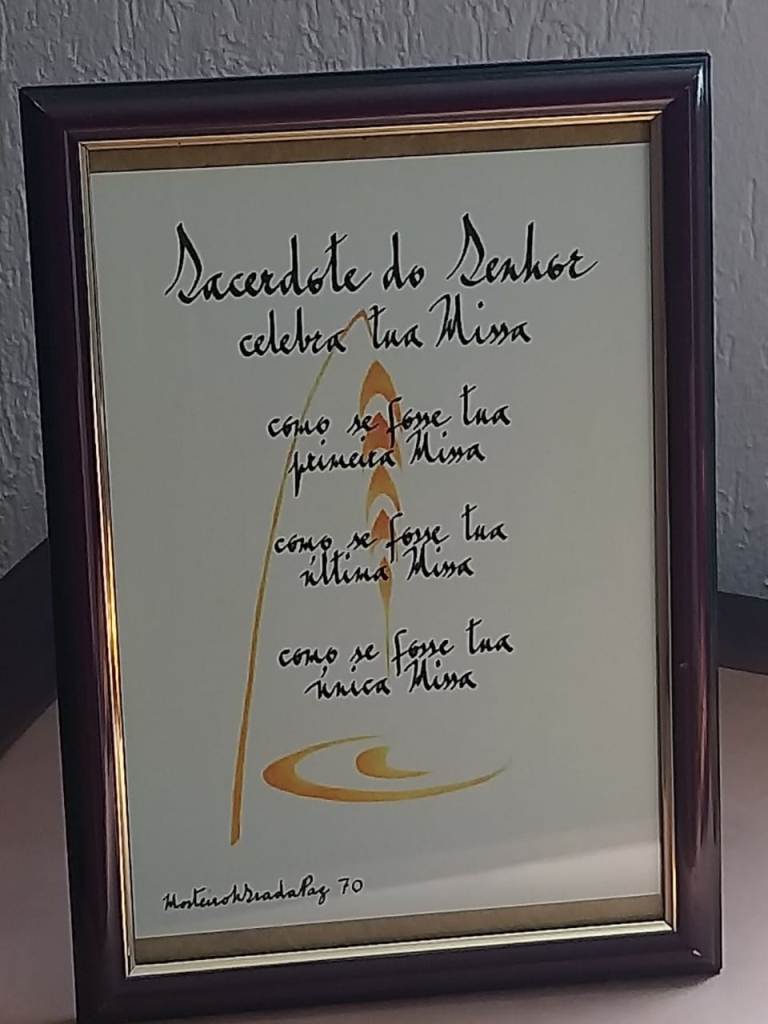 Sacerdote do Senhor
celebra tua Missa
como se fosse tua
primeira Missa
como se fosse tua
última Missa
como se fosse tua
única Missa
MosteiroNSradaPaz 70